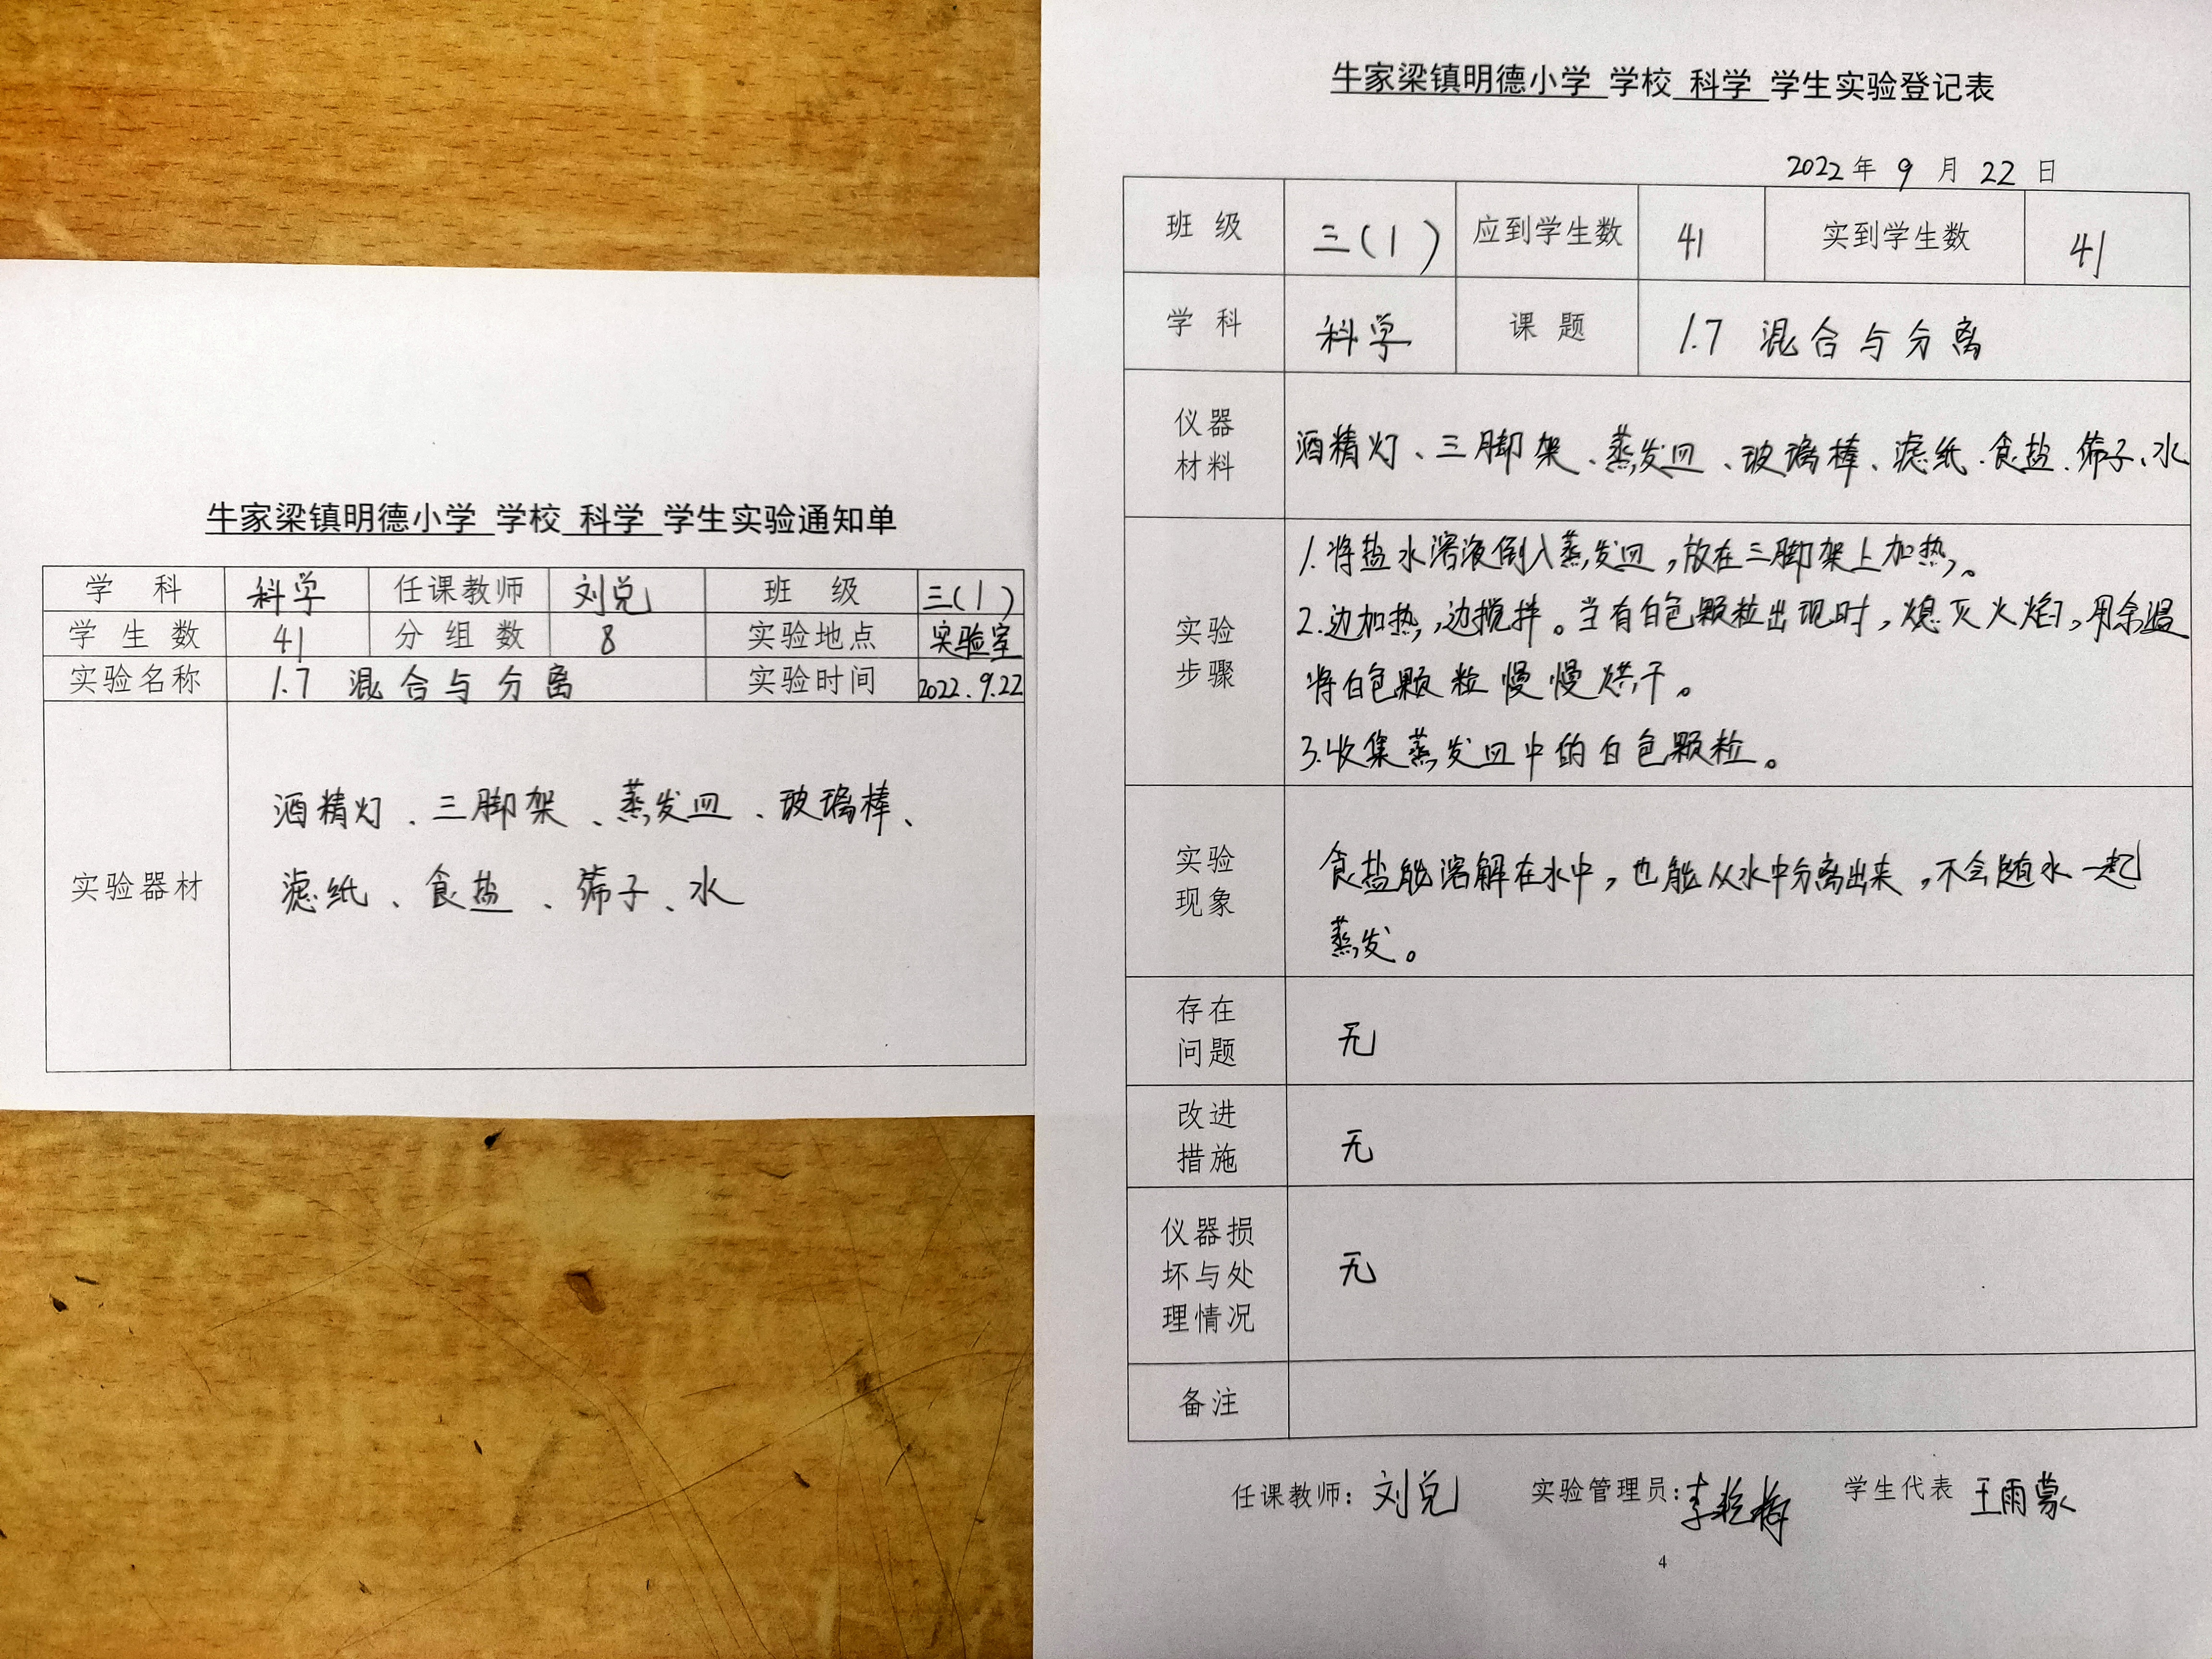 牛家梁镇明德小学 学校 科学 学生实验通知单
学 科 科学 任课教师 刘兑 班 级 三(1)
学 生 数 41 分 组 数 8 实验地点 实验室
实验名称 1.7 混合与分离 实验时间 2022.9.22
实验器材
酒精灯、三脚架、蒸发皿、玻璃棒、
滤纸、食盐、筛子、水
牛家梁镇明德小学 学校 科学 学生实验登记表
2022 年 9 月 22 日
班 级 三(1) 应到学生数 41 实到学生数 41
学 科 科学 课 题 1.7 混合与分离
仪器
材料
酒精灯、三脚架、蒸发皿、玻璃棒、滤纸、食盐、筛子、水
实验
步骤
1.将盐水溶液倒入蒸发皿,放在三脚架上加热。
2.边加热,边搅拌。当有白色颗粒出现时,熄灭火焰,用余温
将白色颗粒慢慢烘干。
3.收集蒸发皿中的白色颗粒。
实验
现象
食盐能溶解在水中,也能从水中分离出来,不会随水一起
蒸发。
存在
问题
无
改进
措施
无
仪器损
坏与处
理情况
无
备注
任课教师:刘兑 实验管理员:李 学生代表 王雨蒙
4